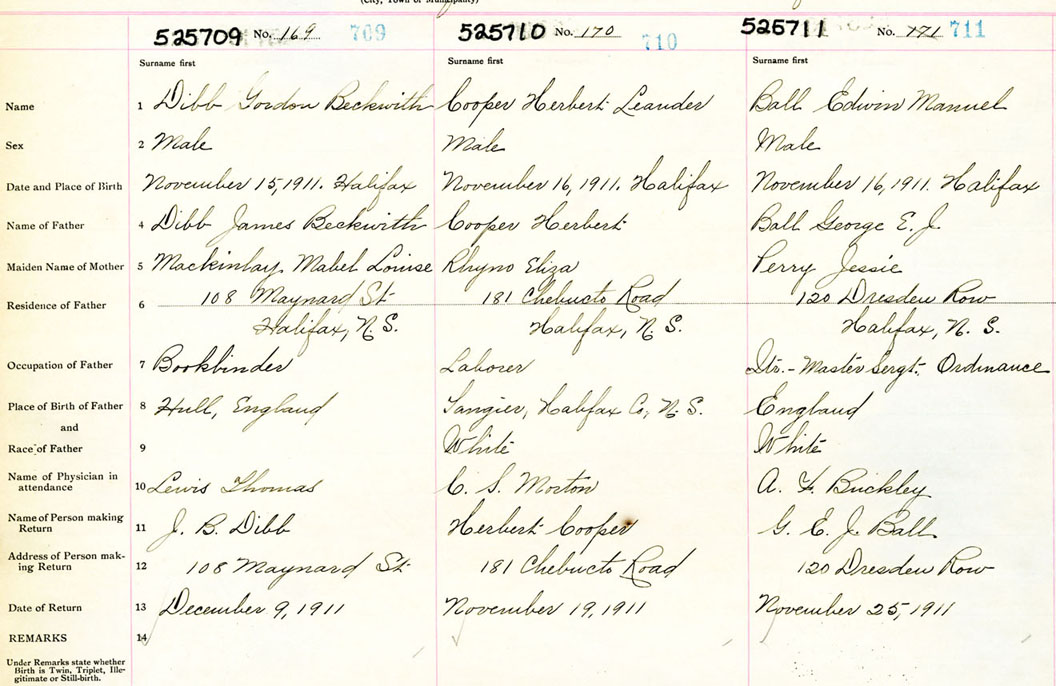 (City, Town or Municipality)
525709 No. 169 709 525710 No. 170 710 525711 No. 171 711
Surname first Surname first Surname first
Name 1 Dibb Gordon Beckwith Cooper Herbert Leander Ball Edwin Manuel
Sex 2 Male Male Male
Date and Place of Birth 3 November 15, 1911. Halifax November 16, 1911. Halifax November 16, 1911. Halifax
Name of Father 4 Dibb James Beckwith Cooper Herbert Ball George E. J.
Maiden Name of Mother 5 Mackinlay, Mabel Louise Rhyno Eliza Perry Jessie
Residence of Father 6 108 Maynard St 181 Chebucto Road 120 Dresden Row
Halifax, N. S. Halifax, N. S. Halifax, N. S.
Occupation of Father 7 Bookbinder Laborer Str.-Master Sergt. Ordinance
Place of Birth of Father 8 Hull, England Tangier, Halifax Co, N. S. England
and
Race of Father 9 White White
Name of Physician in
attendance 10 Lewis Thomas C. S. Morton A. F. Buckley
Name of Person making
Return 11 J. B. Dibb Herbert Cooper G. E. J. Ball
Address of Person mak-
ing Return 12 108 Maynard St. 181 Chebucto Road 120 Dresden Row
Date of Return 13 December 9, 1911 November 19, 1911 November 25, 1911
REMARKS 14
Under Remarks state whether
Birth is Twin, Triplet, Ille-
gitimate or Still-birth.